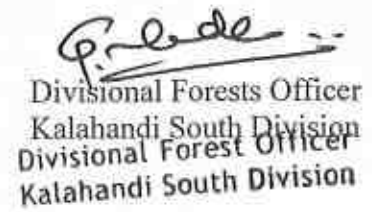 Divisional Forests Officer
Kalahandi South Division
Divisional Forest Officer
Kalahandi South Division